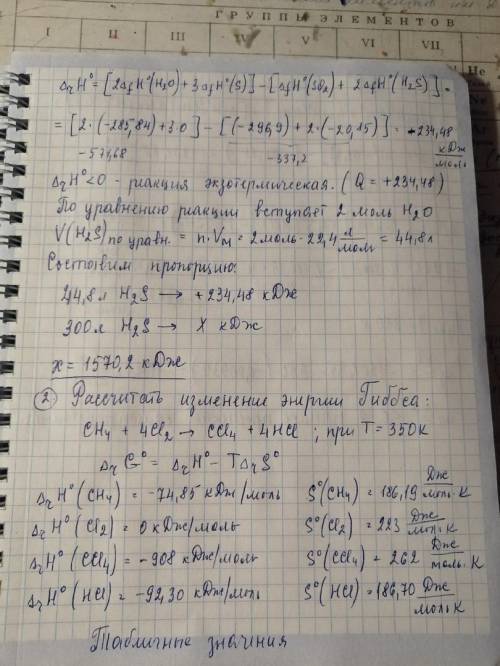 ГРУППЫ ЭЛЕМЕНТОВ
I II III IV V VI VII
ΔrH°=[2ΔfH°(H₂O)+3ΔfH°(S)]-[ΔfH°(SO₂)+2ΔfH°(H₂S)]=
=[2·(-285,84)+3·0]-[(-296,9)+2·(-20,15)]=-234,48 кДж/моль
-571,68 -337,2
ΔrH°<0 - реакция экзотермическая. (Q=+234,48)
По уравнению реакции вступает 2 моль H₂O
V(H₂S) по уравн. = n·Vм = 2моль·22,4 л/моль = 44,8л
Составим пропорцию:
44,8л H₂S → +234,48 кДж
300л H₂S → X кДж
x = 1570,2 кДж
2 Рассчитать изменение энергии Гиббса:
CH₄ + 4Cl₂ → CCl₄ + 4HCl ; при T=350K
ΔrG° = ΔrH° - TΔrS°
ΔrH°(CH₄) = -74,85 кДж/моль S°(CH₄) = 186,19 Дж/моль·К
ΔrH°(Cl₂) = 0 кДж/моль S°(Cl₂) = 223 Дж/моль·К
ΔrH°(CCl₄) = -908 кДж/моль S°(CCl₄) = 262 Дж/моль·К
ΔrH°(HCl) = -92,30 кДж/моль S°(HCl) = 186,70 Дж/моль К
Табличные значения